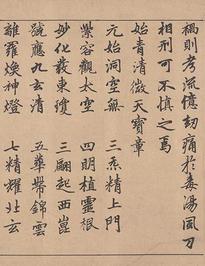 禍則考流億劫痛於毒湯風刀
相刑可不慎之焉
始青清微天寶章
元始洞空無 三炁精上門
紫容觀太空 四明植靈根
妙化發東嶁 三飜起西崑
號應九玄清 五華鬱錦雲
離羅煥神燈 七精耀北玄